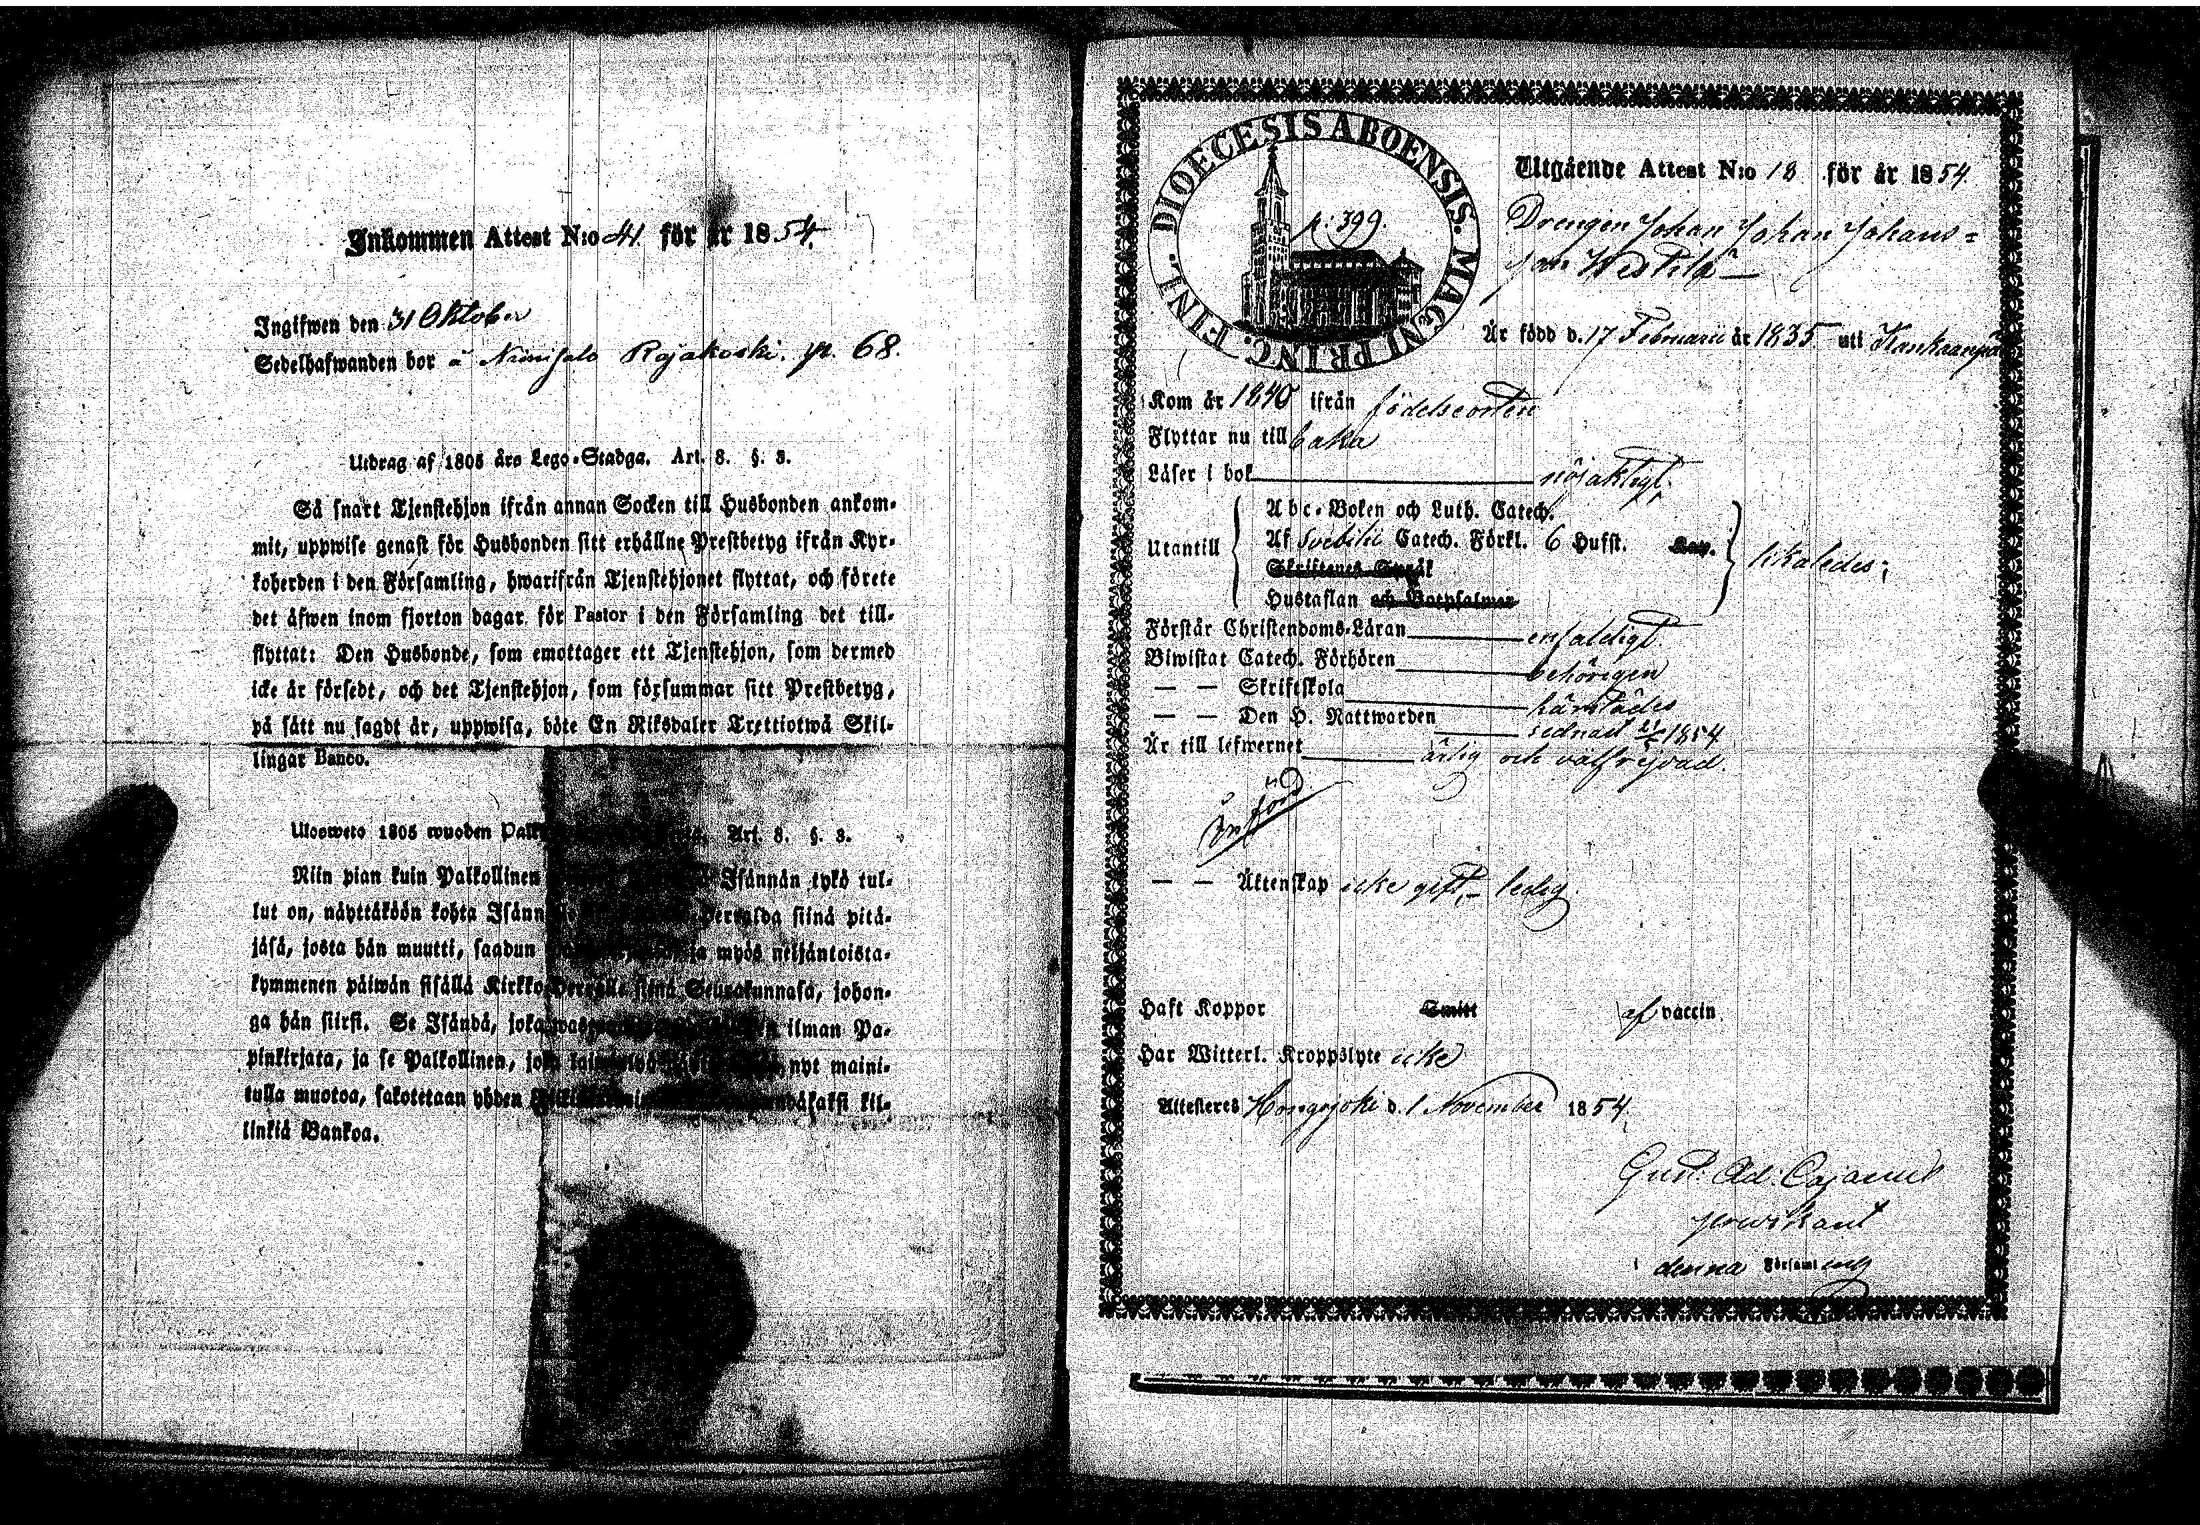 Inkommen Attest N:o 41 för år 1854.
Ingifwen den 31 Oktober
Sedelhafwanden bor å Niinisalo Rajakoski. p. 68.
Utdrag af 1805 års Lego-Stadga. Art. 8. §. 3.
Så snart Tjenstehjon ifrån annan Socken till Husbonden ankom-
mit, uppwise genast för Husbonden sitt erhållne Prestbetyg ifrån Kyr-
koherden i den Församling, hwarifrån Tjenstehjonet flyttat, och förete
det äfwen inom fjorton dagar för Pastor i den Församling det till-
flyttat: Den Husbonde, som emottager ett Tjenstehjon, som dermed
icke är försedt, och det Tjenstehjon, som försummar sitt Prestbetyg,
på sätt nu sagdt är, uppwisa, böte En Riksdaler Trettiotwå Skil-
lingar Banco.
Ulosweto 1805 wuoden Art. 8. §. 3.
Niin pian kuin Palkollinen Isännän tykö tul-
lut on, näyttäköön kohta siinä pitä-
jäsä, josta hän muutti, saadun ja myös neljäntoista-
kymmenen päiwän sisällä siinä Seurakunnasa, johon-
ga hän siirsi. Se Isändä, joka ilman Pa-
pinkirjata, ja se Palkollinen, joka nyt maini-
tulla muotoa, sakotetaan yhden kil-
linkiä Bankoa.
DIOECESIS ABOENSIS. MAGNI PRINC. FINL.
p: 399.
Utgående Attest N:o 18 för år 1854.
Drengen Johan Johan Johans-
son Westilä
Är född d. 17 Februarii år 1835 uti Kankaanpää
Kom år 1840 ifrån födelseorten
Flyttar nu till baka
Läser i bok nöjaktigt.
Utantill
Abc-Boken och Luth. Catech.
Af Svebilii Catech. Förkl. 6 Hufst. Kap.
Skriftenes Språk
Hustaflan och Botpsalmer
likaledes;
Förstår Christendoms-Läran enfaldigt.
Biwistat Catech. Förhören behörigen
— — Skriftskola härstädes
— — Den H. Nattwarden sednast 1854
Är till lefwernet ärlig och välfrejdad.
Införd
— — Äktenskap icke gift, – ledig.
Haft Koppor Smitt af vaccin
Har Witterl. Kroppslyte icke
Attesteres Hongojoki d. 1 November 1854.
Gust: Ad: Cajanus
i denna Församling